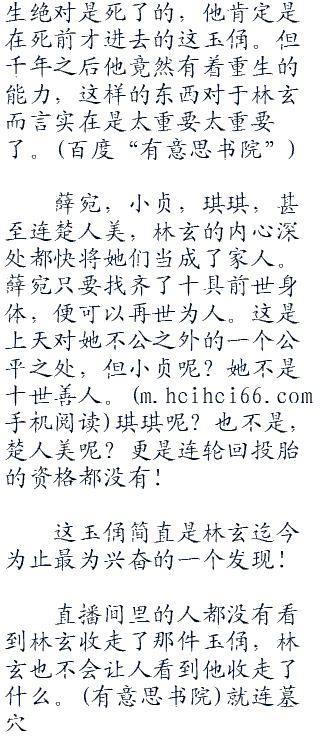 生绝对是死了的，他肯定是
在死前才进去的这玉俑。但
千年之后他竟然有着重生的
能力，这样的东西对于林玄
而言实在是太重要太重要
了。(百度“有意思书院”)
薛宛，小贞，琪琪，甚
至连楚人美，林玄的内心深
处都快将她们当成了家人。
薛宛只要找齐了十具前世身
体，便可以再世为人。这是
上天对她不公之外的一个公
平之处，但小贞呢？她不是
十世善人。(m.hcihci66.com
手机阅读)琪琪呢？也不是，
楚人美呢？更是连轮回投胎
的资格都没有！
这玉俑简直是林玄迄今
为止最为兴奋的一个发现！
直播间里的人都没有看
到林玄收走了那件玉俑，林
玄也不会让人看到他收走了
什么。(有意思书院)就连墓
穴